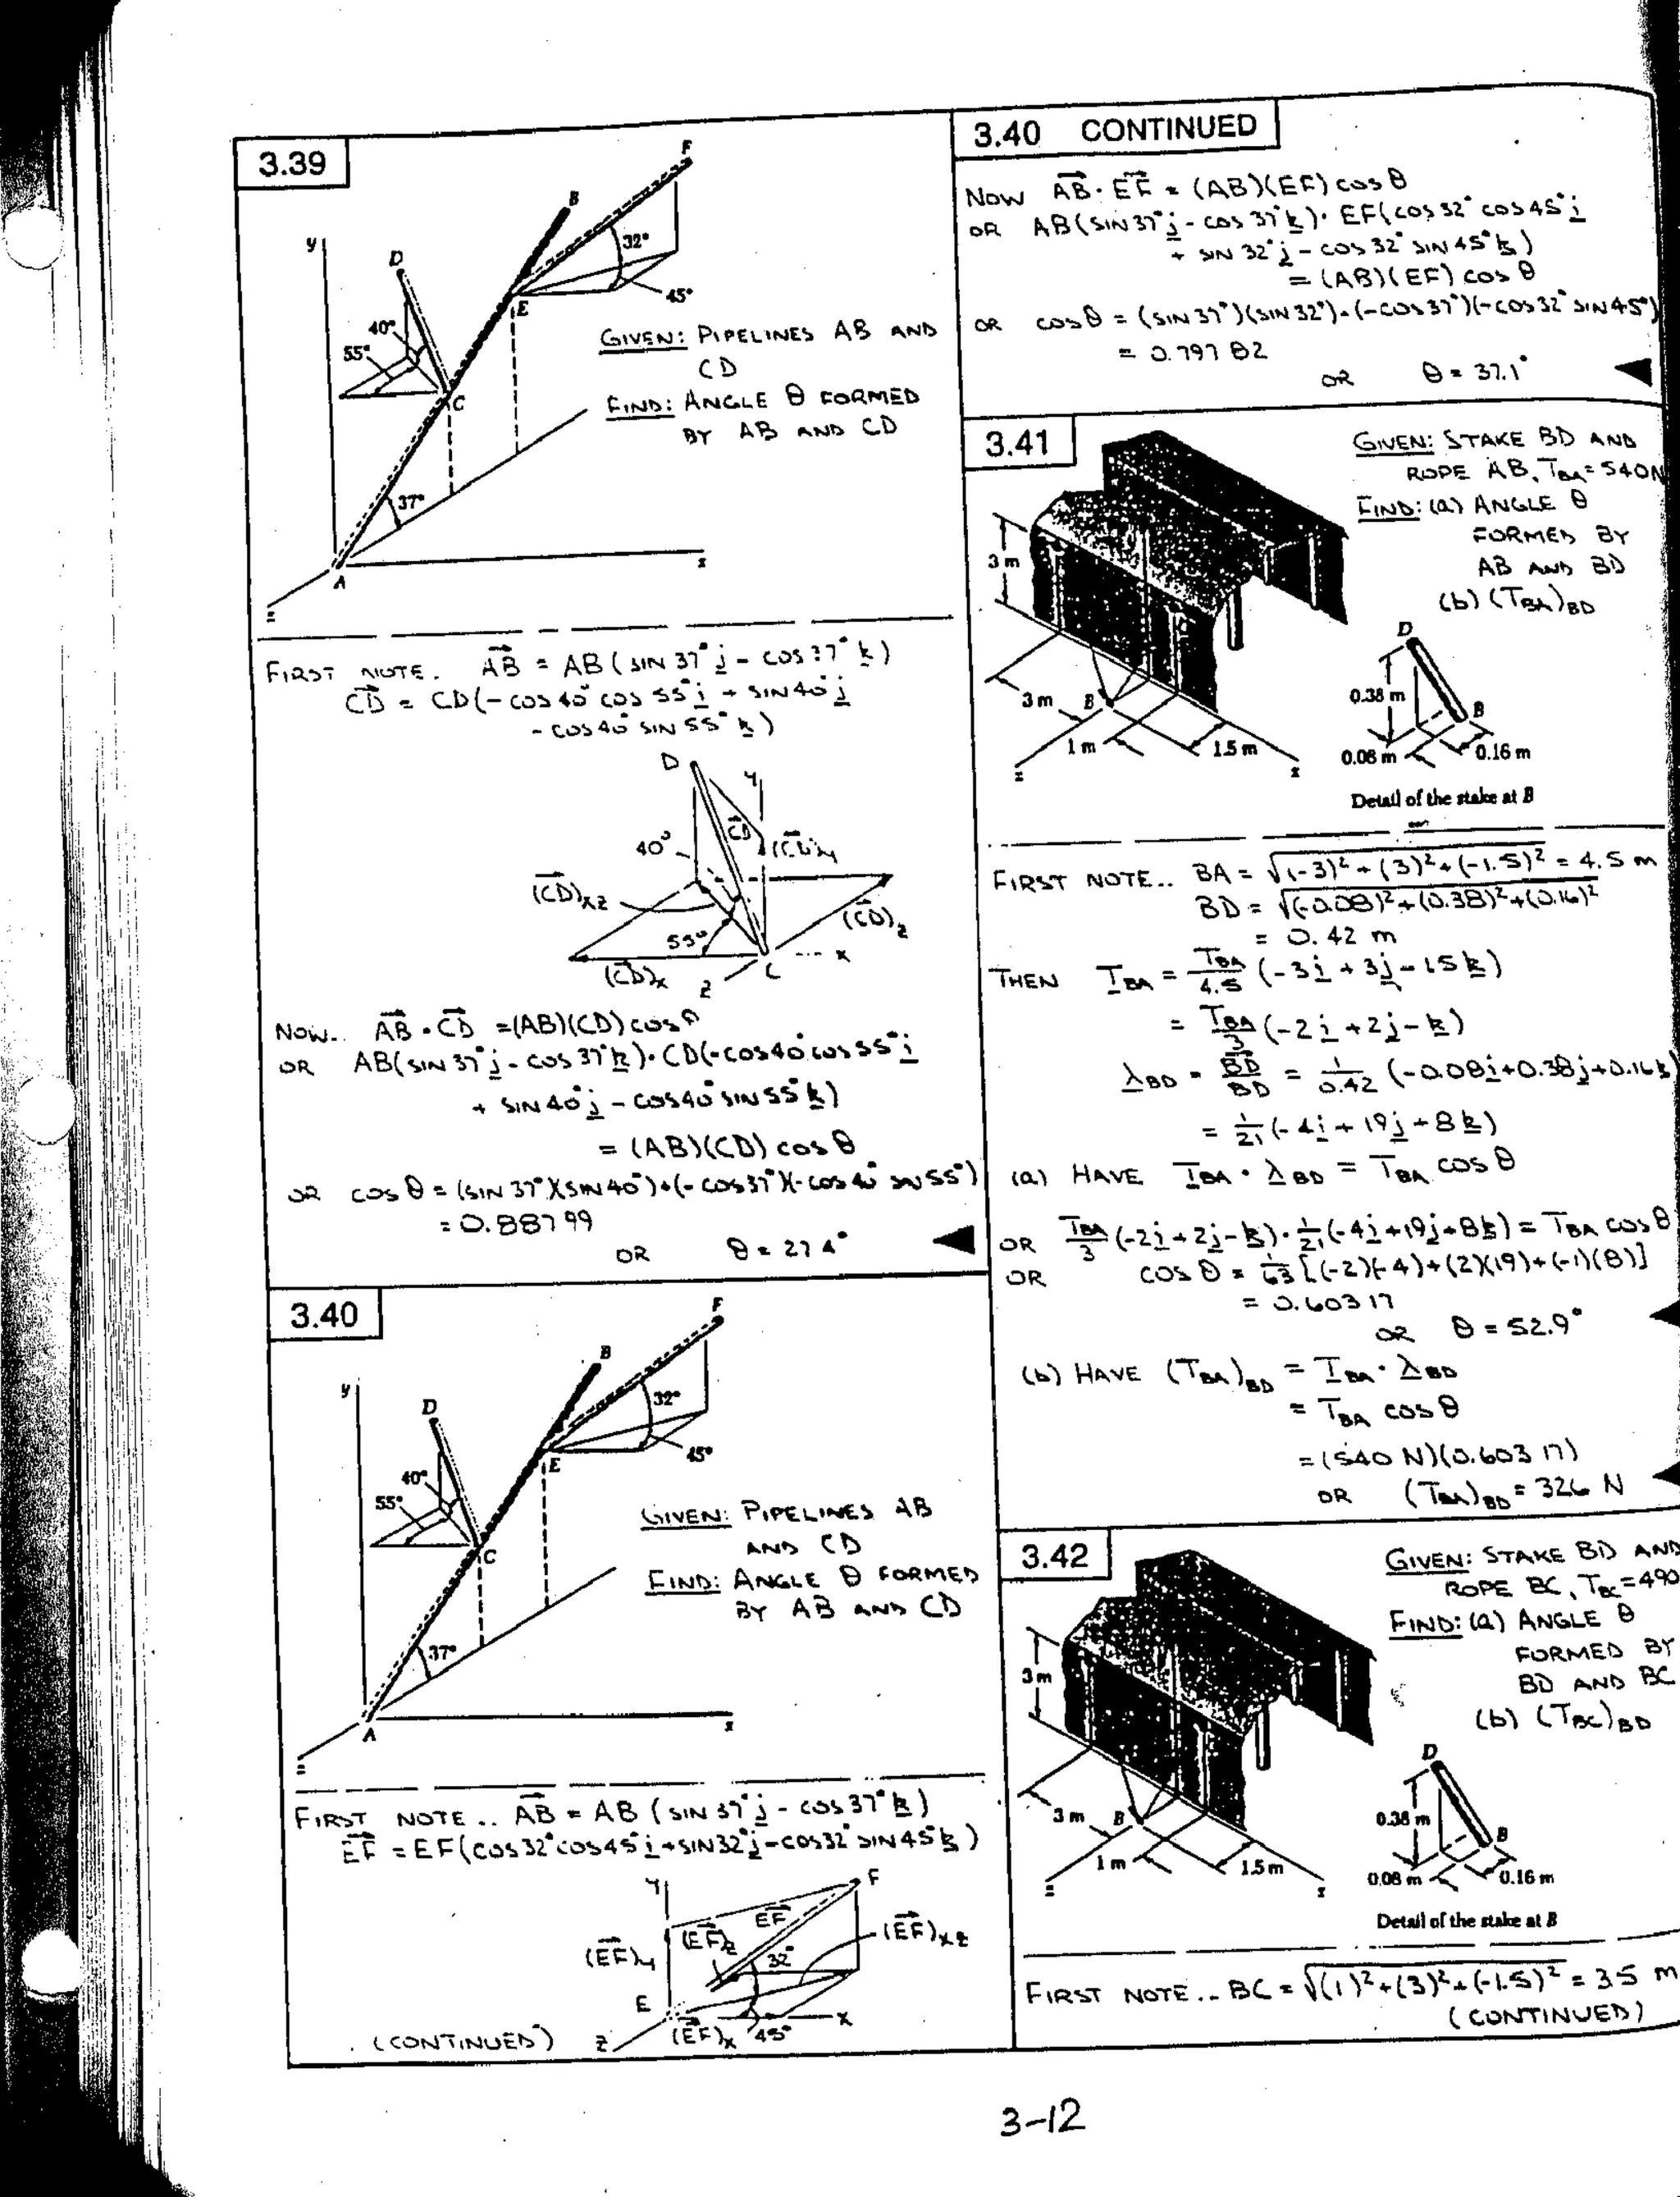 3.39
F
B
y
D
32°
45°
E
40°
55°
C
37°
A
x
z
GIVEN: PIPELINES AB AND
CD
FIND: ANGLE θ FORMED
BY AB AND CD
FIRST NOTE. AB = AB (SIN 37° j - COS 37° k)
CD = CD(-COS 40° COS 55° i + SIN 40° j
- COS 40° SIN 55° k)
D
y
40°
CD
(CD)y
(CD)xz
(CD)z
55°
(CD)x
z
C
x
NOW.. AB • CD = (AB)(CD) COS θ
OR AB(SIN 37° j - COS 37° k) • CD(-COS 40° COS 55° i
+ SIN 40° j - COS 40° SIN 55° k)
= (AB)(CD) COS θ
OR COS θ = (SIN 37°)(SIN 40°)+(-COS 37°)(-COS 40° SIN 55°)
= 0.88799
OR θ = 27.4°
3.40
F
B
y
D
32°
45°
E
40°
55°
C
37°
A
x
z
GIVEN: PIPELINES AB
AND CD
FIND: ANGLE θ FORMED
BY AB AND CD
FIRST NOTE .. AB = AB (SIN 37° j - COS 37° k)
EF = EF(COS 32° COS 45° i + SIN 32° j - COS 32° SIN 45° k)
y
F
EF
(EF)z
(EF)y
(EF)xz
32°
E
x
z
(EF)x
45°
(CONTINUED)
3.40 CONTINUED
NOW AB • EF = (AB)(EF) COS θ
OR AB(SIN 37° j - COS 37° k) • EF(COS 32° COS 45° i
+ SIN 32° j - COS 32° SIN 45° k)
= (AB)(EF) COS θ
OR COS θ = (SIN 37°)(SIN 32°)+(-COS 37°)(-COS 32° SIN 45°)
= 0.79782
OR θ = 37.1°
3.41
GIVEN: STAKE BD AND
ROPE AB, TBA = 540 N
FIND: (a) ANGLE θ
FORMED BY
AB AND BD
(b) (TBA)BD
3 m
3 m
B
1 m
1.5 m
z
x
D
0.38 m
B
0.08 m
0.16 m
Detail of the stake at B
FIRST NOTE.. BA = √(-3)² + (3)² + (-1.5)² = 4.5 m
BD = √(-0.08)² + (0.38)² + (0.16)²
= 0.42 m
THEN TBA = TBA/4.5 (-3i + 3j - 1.5k)
= TBA/3 (-2i + 2j - k)
λBD = BD/BD = 1/0.42 (-0.08i + 0.38j + 0.16k)
= 1/21 (-4i + 19j + 8k)
(a) HAVE TBA • λBD = TBA COS θ
OR TBA/3 (-2i + 2j - k) • 1/21 (-4i + 19j + 8k) = TBA COS θ
OR COS θ = 1/63 [(-2)(-4) + (2)(19) + (-1)(8)]
= 0.60317
OR θ = 52.9°
(b) HAVE (TBA)BD = TBA • λBD
= TBA COS θ
= (540 N)(0.60317)
OR (TBA)BD = 326 N
3.42
GIVEN: STAKE BD AND
ROPE BC, TBC = 490
FIND: (a) ANGLE θ
FORMED BY
BD AND BC
(b) (TBC)BD
3 m
3 m
B
1 m
1.5 m
z
x
D
0.38 m
B
0.08 m
0.16 m
Detail of the stake at B
FIRST NOTE .. BC = √(1)² + (3)² + (-1.5)² = 3.5 m
(CONTINUED)
3-12